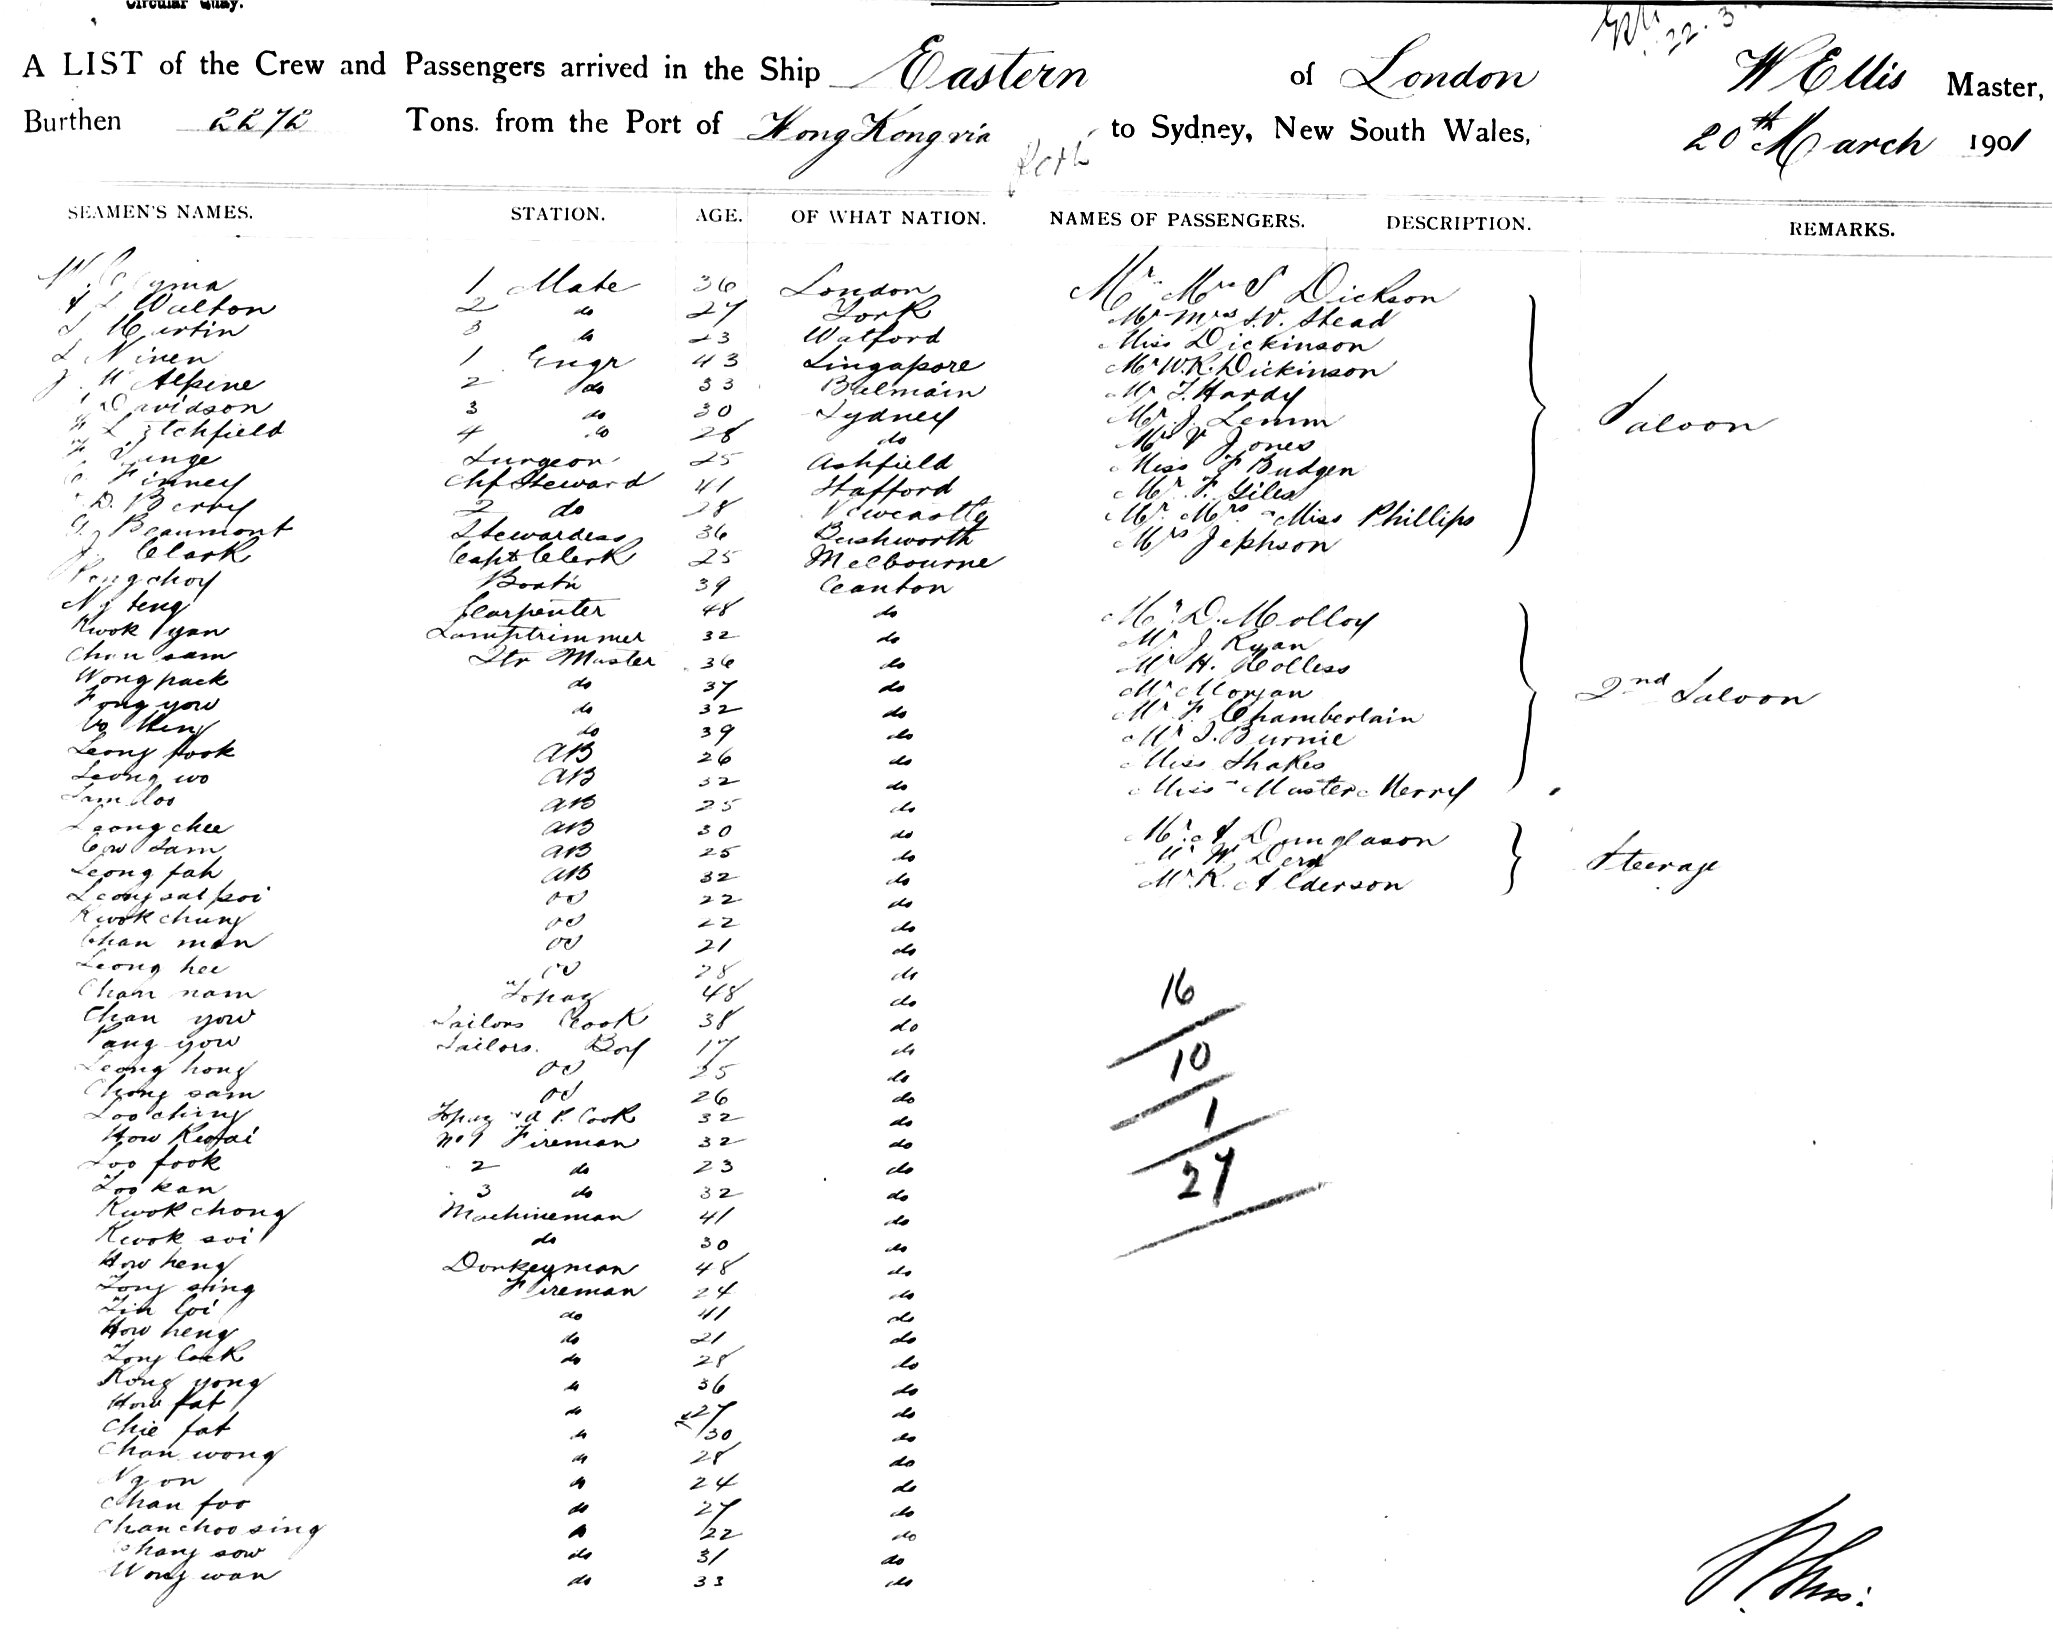 Circular Quay.
22.3
A LIST of the Crew and Passengers arrived in the Ship Eastern of London W Ellis Master,
Burthen 2272 Tons. from the Port of Hong Kong via to Sydney, New South Wales, 20th March 1901
SEAMEN'S NAMES. STATION. AGE. OF WHAT NATION. NAMES OF PASSENGERS. DESCRIPTION. REMARKS.
1 Mate 36 London Mr Mrs S Dickson
Walton 2 do 27 York Mr Mrs S.V. Stead
Martin 3 do 23 Watford Miss Dickinson
Ninen 1 Engr 43 Singapore Mr W.R. Dickinson
McAlpine 2 do 33 Balmain Mr T. Hardy
Davidson 3 do 30 Sydney Mr J. Lemm Saloon
Litchfield 4 do 28 do Mr V Jones
Surgeon 25 Ashfield Miss F Budgen
Finney Chf Steward 41 Stafford Mr F. Giles
D. Berry 2 do 28 Newcastle Mr Mrs Miss Phillips
Beaumont Stewardess 36 Bushworth Mrs Jephson
Clark Capt Clerk 25 Melbourne
choy Boatn 39 Canton
Ng teng Carpenter 48 do Mr D. Molloy
Kwok yan Lamptrimmer 32 do Mr J Ryan
Chan sam Qtr Master 36 do Mr H. Holless
Wong pack do 37 do Mr Morgan 2nd Saloon
Fong yow do 32 do Mr F Chamberlain
Hing do 39 do Mr S. Burnie
Leong fook AB 26 do Miss Shakes
Leong wo AB 32 do Miss Master Merry
Sam AB 25 do
Leong chee AB 30 do Mr A Dunglason
Sam AB 25 do Mr W.
Leong fah AB 32 do Mr R. Alderson Steerage
Leong sat poi OS 22 do
Kwok chung OS 22 do
Chan man OS 21 do
Leong hee OS 28 do
Chan nam Topaz 48 do 16
Chan yow Sailors Cook 38 do
Pang yow Sailors Boy 17 do 10
Leong hong OS 25 do
Chong sam OS 26 do
Loo ching Topaz A P. Cook 32 do 1
How No 1 Fireman 32 do
Loo fook 2 do 23 do 27
Loo kan 3 do 32 do
Kwok chong Machineman 41 do
Kwok soi do 30 do
How heng Donkeyman 48 do
Long sing Fireman 24 do
Lin loi do 41 do
How heng do 21 do
Long lock do 28 do
Kong yong do 36 do
How fat do 27 do
Chie fat do 30 do
Chan wong do 28 do
Ng on do 24 do
Chan foo do 27 do
Chan choo sing do 22 do
Chang sow do 31 do
Wong wan do 33 do